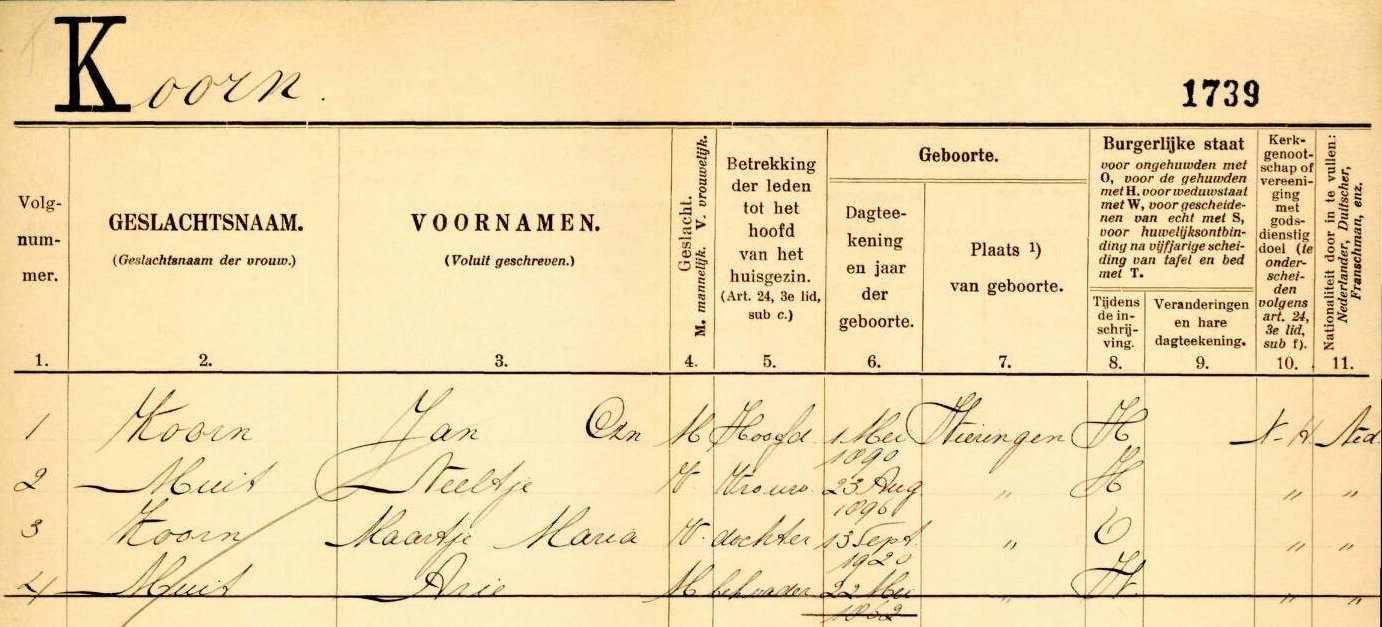 Koorn.
1739
Volg-
num-
mer.
1.
GESLACHTSNAAM.
(Geslachtsnaam der vrouw.)
2.
VOORNAMEN.
(Voluit geschreven.)
3.
Geslacht.
M. mannelijk. V. vrouwelijk.
4.
Betrekking
der leden
tot het
hoofd
van het
huisgezin.
(Art. 24, 3e lid,
sub c.)
5.
Geboorte.
Dagtee-
kening
en jaar
der
geboorte.
6.
Plaats ¹)
van geboorte.
7.
Burgerlijke staat
voor ongehuwden met
O, voor de gehuwden
met H, voor weduwstaat
met W, voor gescheide-
nen van echt met S,
voor huwelijksontbin-
ding na vijfjarige schei-
ding van tafel en bed
met T.
Tijdens
de in-
schrij-
ving.
8.
Veranderingen
en hare
dagteekening.
9.
Kerk-
genoot-
schap of
vereeni-
ging
met
gods-
dienstig
doel (te
onder-
schei-
den
volgens
art. 24,
3e lid,
sub f).
10.
Nationaliteit door in te vullen:
Nederlander, Duitscher,
Franschman, enz.
11.
1 Koorn Jan Czn M Hoofd 1 Mei 1890 Wieringen H N-H Ned
2 Muit Neeltje V. Vrouw. 23 Aug 1896 " H " "
3 Koorn Maartje Maria V. dochter 13 Sept. 1920 " O " "
4 Muit Arie M beh vader 22 Mei 1862 " W. " "